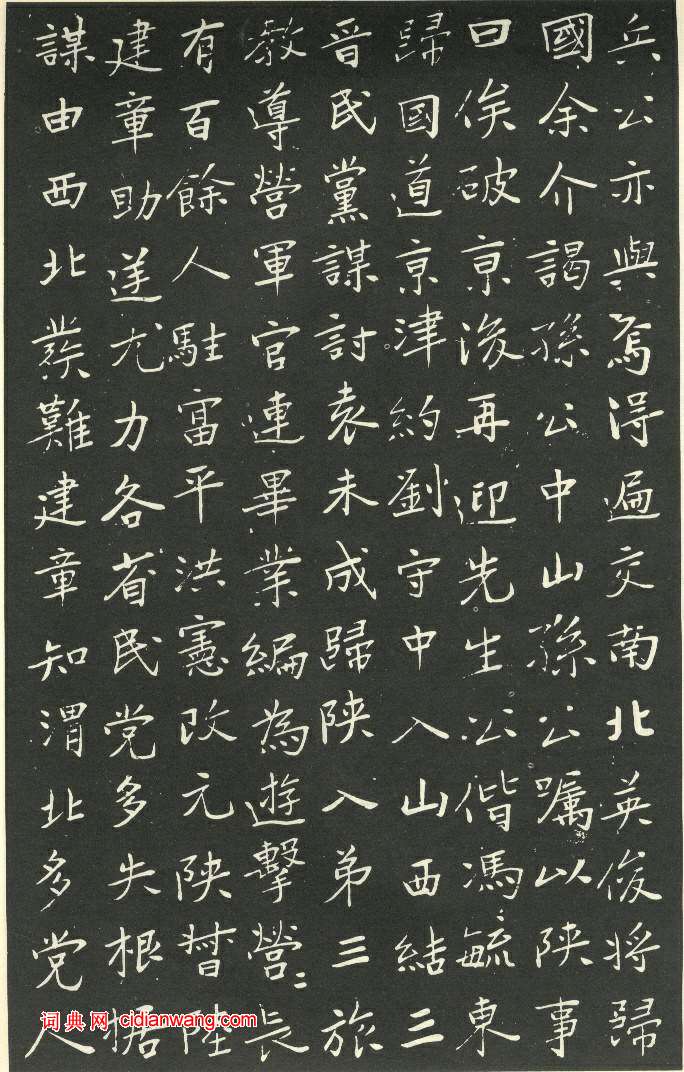 兵公亦與焉得遍交南北英俊将歸
國余介謁孫公中山孫公嘱以陕事
曰俟破京後再迎先生公偕馮毓東
歸國道京津約劉守中入山西結三
晋民黨謀討袁未成歸陕入弟三旅
教導營軍官連畢業編為遊擊營〻長
有百餘人駐富平洪憲改元陕督陸
建章助逆尤力各省民党多失根据
謀由西北發難建章知渭北多党人
词典网 cidianwang.com